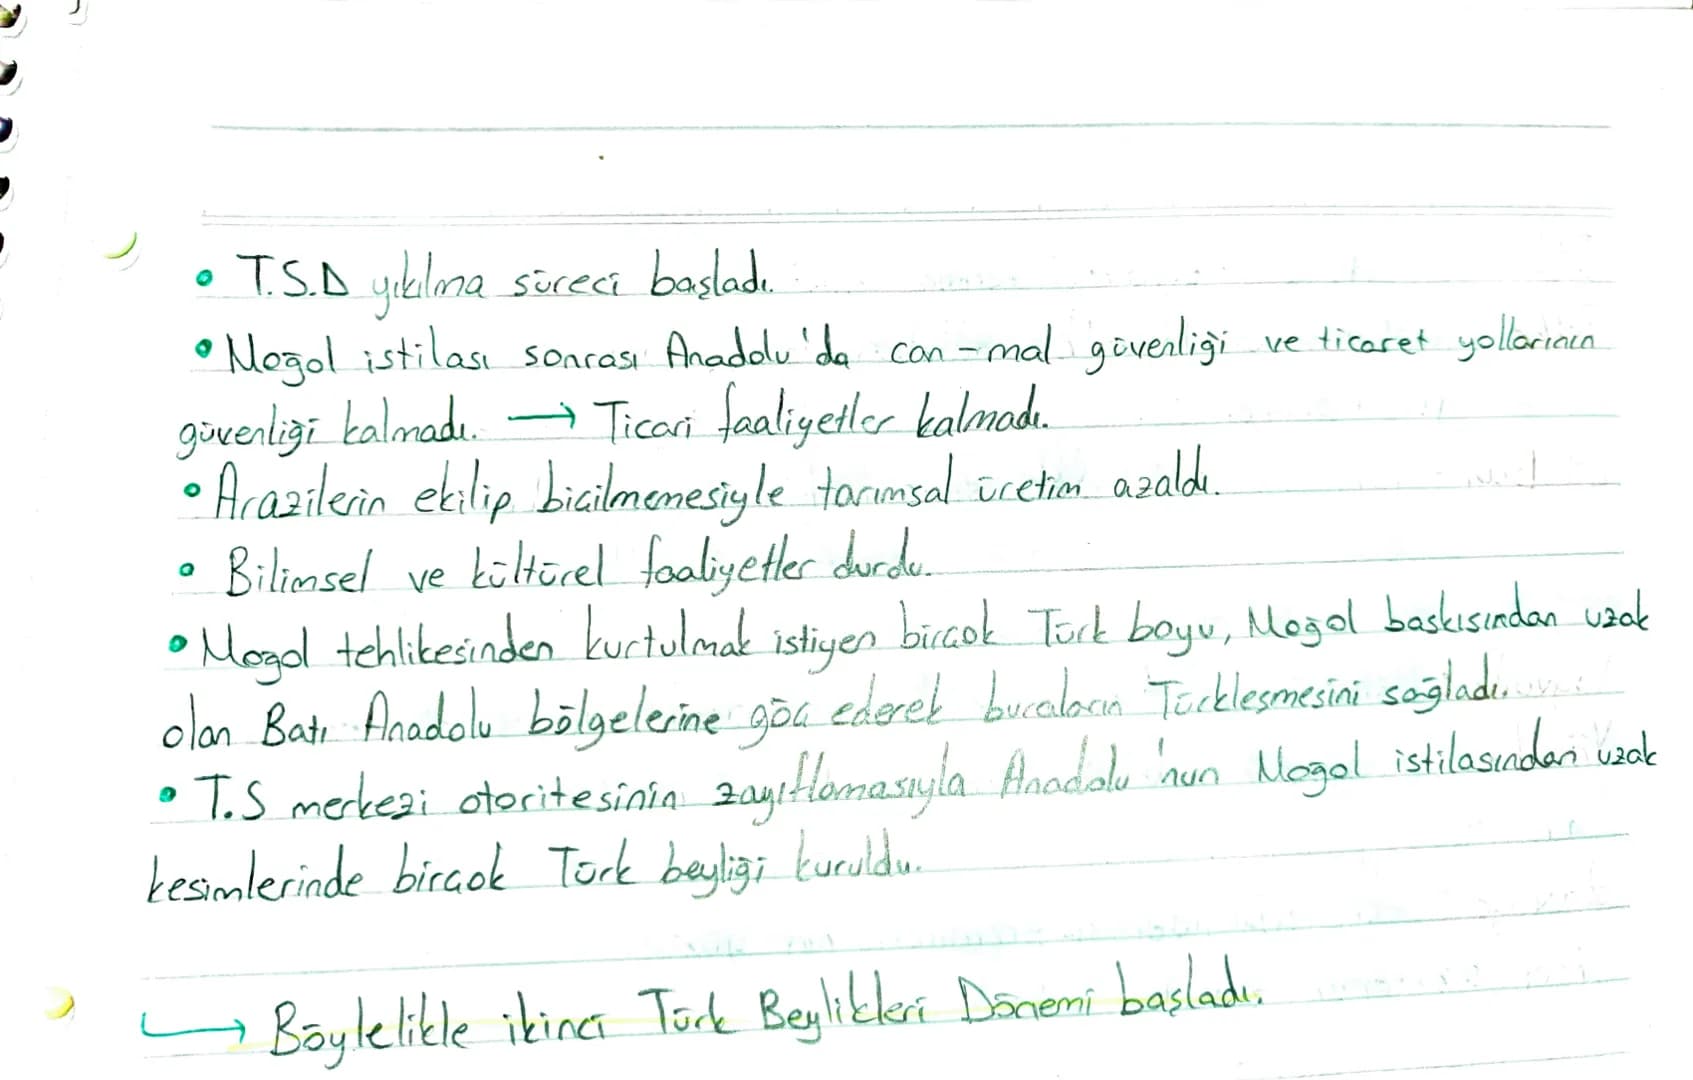 • T.S.D yıkılma süreci başladı.
• Moğol istilası sonrası Anadolu'da can-mal güvenliği ve ticaret yollarının
güvenliği kalmadı. → Ticari faaliyetler kalmadı.
• Arazilerin ekilip biçilmemesiyle tarımsal üretim azaldı.
• Bilimsel ve kültürel faaliyetler durdu.
• Moğol tehlikesinden kurtulmak istiyen birçok Türk boyu, Moğol baskısından uzak
olan Batı Anadolu bölgelerine göç ederek buraların Türkleşmesini sağladı.
• T.S merkezi otoritesinin zayıflamasıyla Anadolu'nun Moğol istilasından uzak
kesimlerinde birçok Türk beyliği kuruldu.
→ Böylelikle ikinci Türk Beylikleri Dönemi başladı.